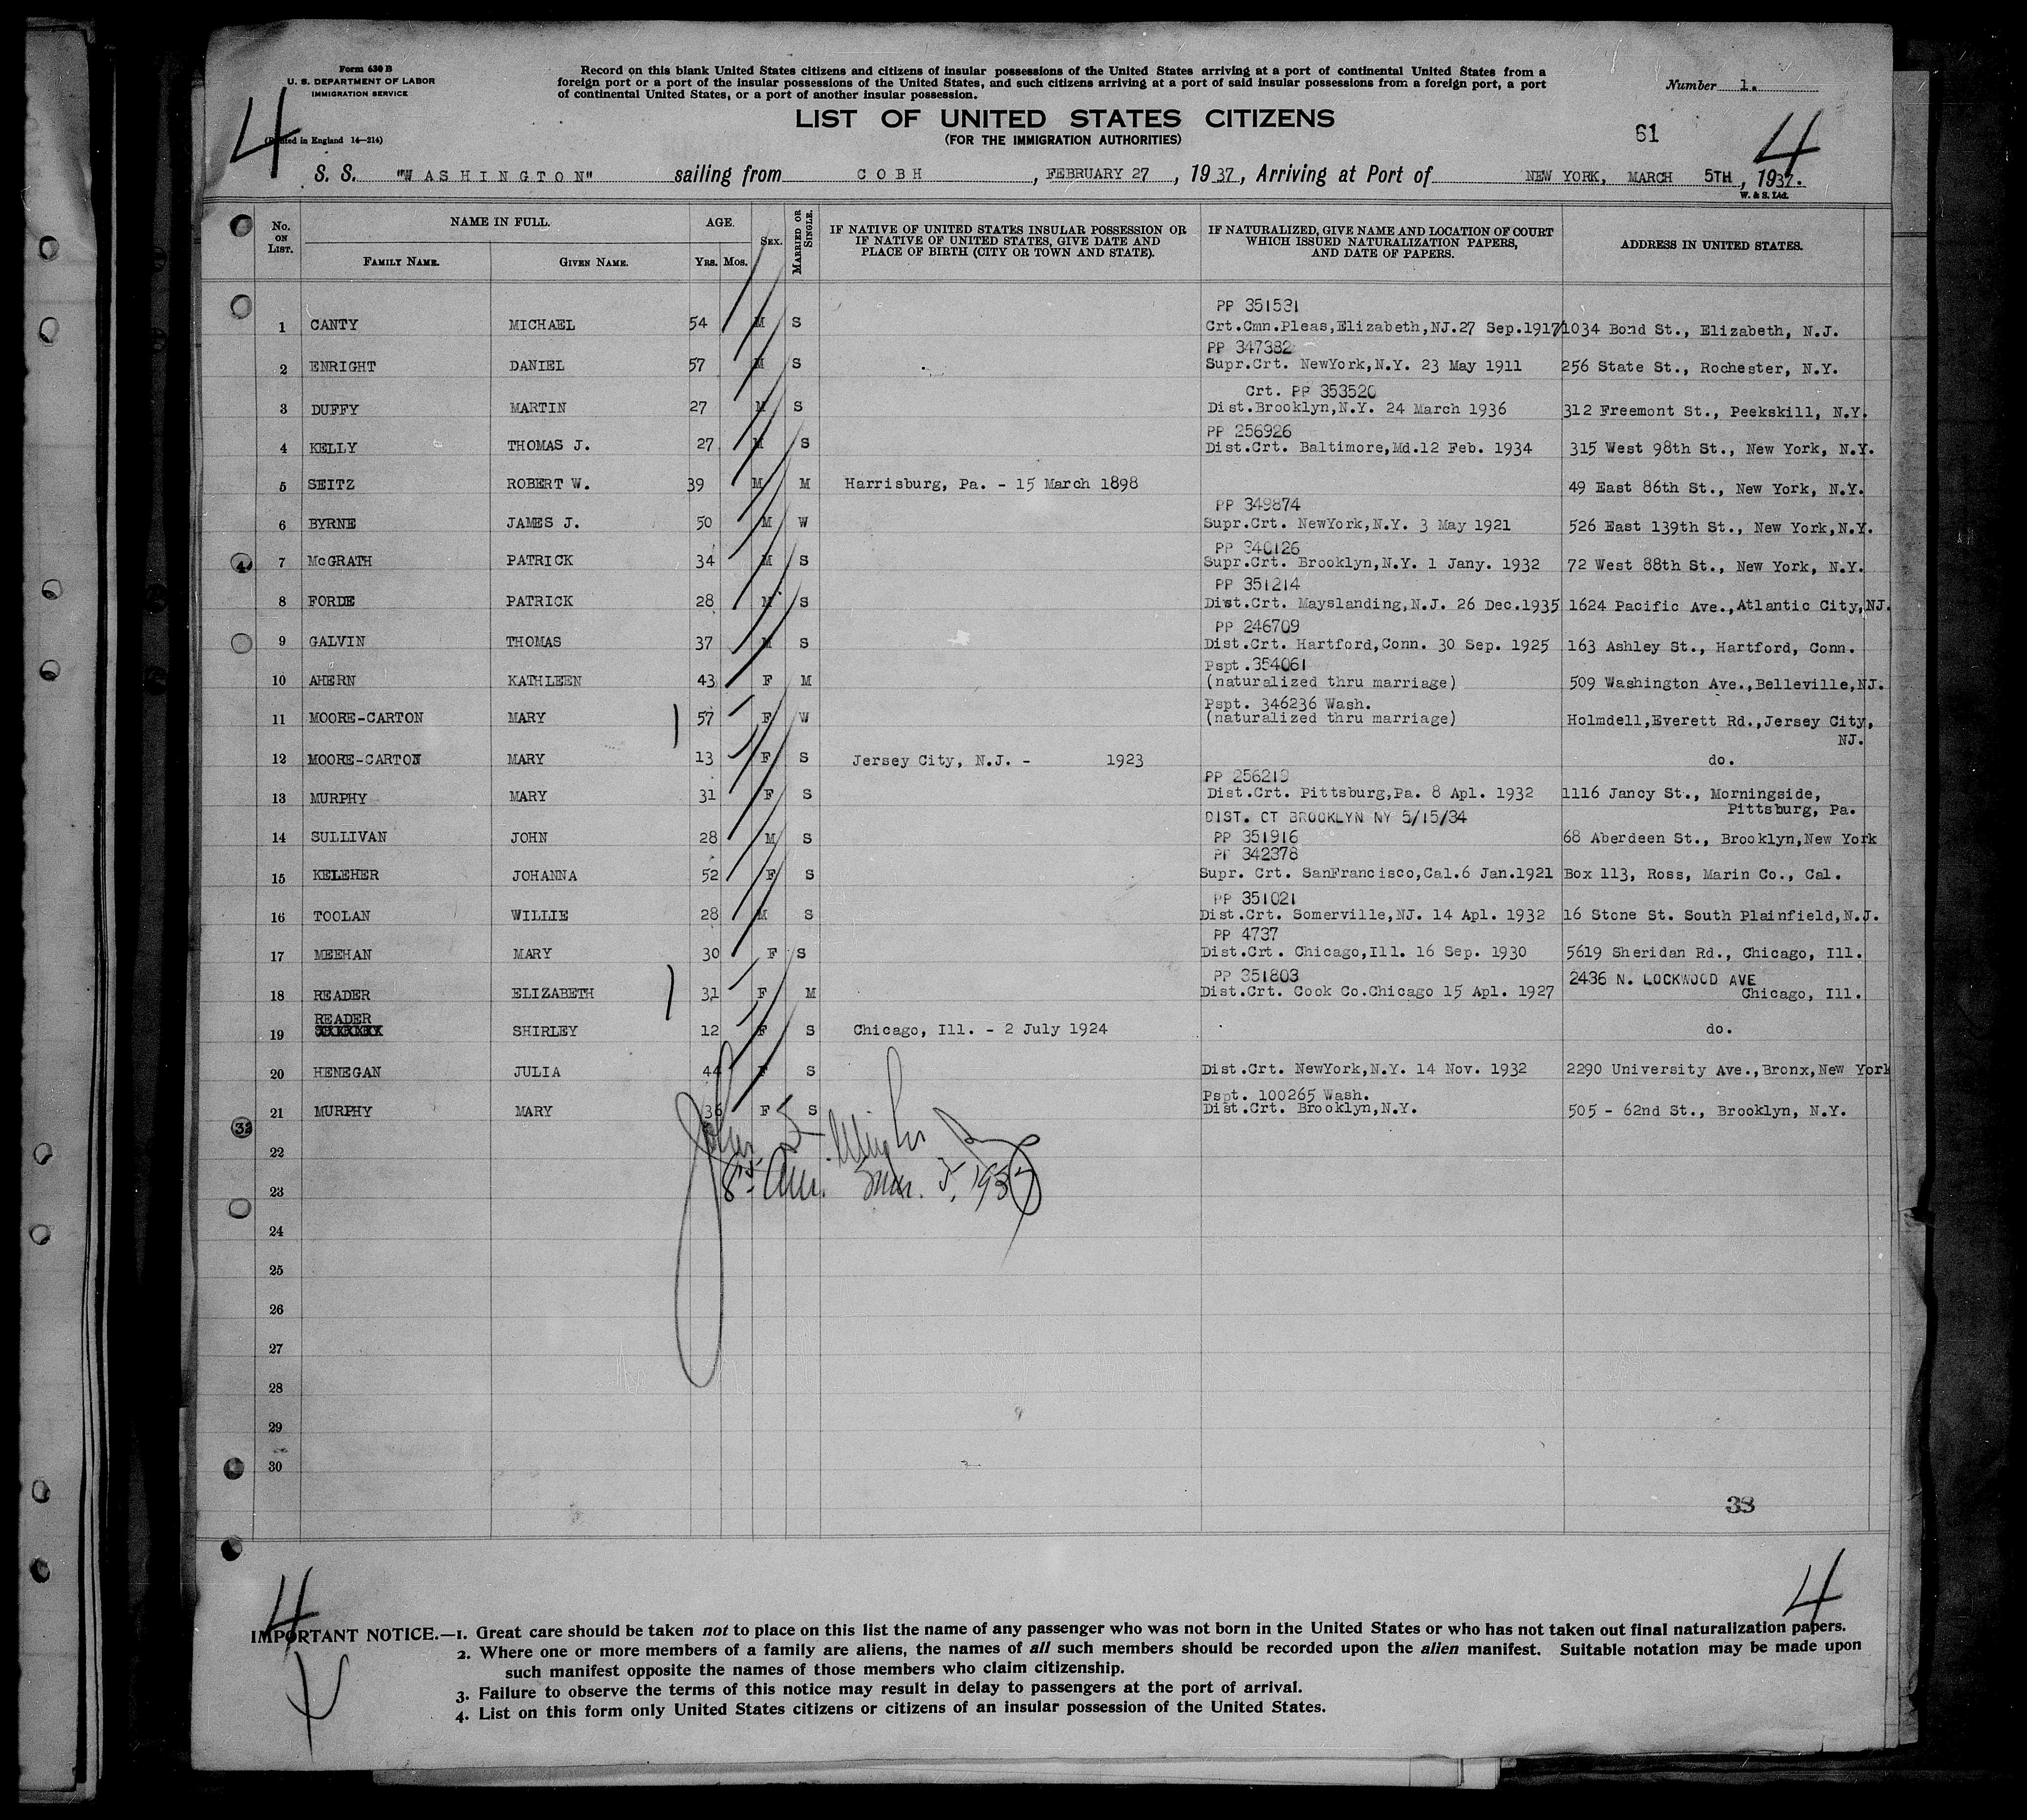 Form 630 B
U. S. DEPARTMENT OF LABOR
IMMIGRATION SERVICE
(Printed in England 14—214)
4
Record on this blank United States citizens and citizens of insular possessions of the United States arriving at a port of continental United States from a
foreign port or a port of the insular possessions of the United States, and such citizens arriving at a port of said insular possessions from a foreign port, a port
of continental United States, or a port of another insular possession.
Number 1.
LIST OF UNITED STATES CITIZENS
(FOR THE IMMIGRATION AUTHORITIES)
61
4
S. S. "WASHINGTON" sailing from COBH, FEBRUARY 27, 1937, Arriving at Port of NEW YORK, MARCH 5TH, 1937.
W. & S. Ltd.
No. ON LIST. NAME IN FULL. FAMILY NAME. GIVEN NAME. AGE. YRS. MOS. SEX. MARRIED OR SINGLE. IF NATIVE OF UNITED STATES INSULAR POSSESSION OR IF NATIVE OF UNITED STATES, GIVE DATE AND PLACE OF BIRTH (CITY OR TOWN AND STATE). IF NATURALIZED, GIVE NAME AND LOCATION OF COURT WHICH ISSUED NATURALIZATION PAPERS, AND DATE OF PAPERS. ADDRESS IN UNITED STATES.
PP 351531
1 CANTY MICHAEL 54 M S Crt.Cmn.Pleas,Elizabeth,NJ.27 Sep.1917 1034 Bond St., Elizabeth, N.J.
PP 347382
2 ENRIGHT DANIEL 57 M S Supr.Crt. NewYork,N.Y. 23 May 1911 256 State St., Rochester, N.Y.
Crt. PP 353520
3 DUFFY MARTIN 27 M S Dist.Brooklyn,N.Y. 24 March 1936 312 Freemont St., Peekskill, N.Y.
PP 256926
4 KELLY THOMAS J. 27 M S Dist.Crt. Baltimore,Md.12 Feb. 1934 315 West 98th St., New York, N.Y.
5 SEITZ ROBERT W. 39 M M Harrisburg, Pa. - 15 March 1898 49 East 86th St., New York, N.Y.
PP 349874
6 BYRNE JAMES J. 50 M W Supr.Crt. NewYork,N.Y. 3 May 1921 526 East 139th St., New York,N.Y.
PP 340126
7 McGRATH PATRICK 34 M S Supr.Crt. Brooklyn,N.Y. 1 Jany. 1932 72 West 88th St., New York, N.Y.
PP 351214
8 FORDE PATRICK 28 M S Dist.Crt. Mayslanding,N.J. 26 Dec.1935 1624 Pacific Ave.,Atlantic City,NJ.
PP 246709
9 GALVIN THOMAS 37 M S Dist.Crt. Hartford,Conn. 30 Sep. 1925 163 Ashley St., Hartford, Conn.
Pspt.354061
10 AHERN KATHLEEN 43 F M (naturalized thru marriage) 509 Washington Ave.,Belleville,NJ.
Pspt. 346236 Wash.
11 MOORE-CARTON MARY 57 F W (naturalized thru marriage) Holmdell,Everett Rd.,Jersey City,
NJ.
12 MOORE-CARTON MARY 13 F S Jersey City, N.J. - 1923 do.
PP 256219
13 MURPHY MARY 31 F S Dist.Crt. Pittsburg,Pa. 8 Apl. 1932 1116 Jancy St., Morningside,
Pittsburg, Pa.
DIST. CT BROOKLYN NY 5/15/34
14 SULLIVAN JOHN 28 M S PP 351916 68 Aberdeen St., Brooklyn,New York
PP 342378
15 KELEHER JOHANNA 52 F S Supr. Crt. SanFrancisco,Cal.6 Jan.1921 Box 113, Ross, Marin Co., Cal.
PP 351021
16 TOOLAN WILLIE 28 M S Dist.Crt. Somerville,NJ. 14 Apl. 1932 16 Stone St. South Plainfield,N.J.
PP 4737
17 MEEHAN MARY 30 F S Dist.Crt. Chicago,Ill. 16 Sep. 1930 5619 Sheridan Rd., Chicago, Ill.
PP 351803 2436 N. LOCKWOOD AVE
18 READER ELIZABETH 31 F M Dist.Crt. Cook Co.Chicago 15 Apl. 1927 Chicago, Ill.
READER
19 SHIRLEY 12 F S Chicago, Ill. - 2 July 1924 do.
20 HENEGAN JULIA 44 F S Dist.Crt. NewYork,N.Y. 14 Nov. 1932 2290 University Ave.,Bronx,New York
Pspt. 100265 Wash.
21 MURPHY MARY 36 F S Dist.Crt. Brooklyn,N.Y. 505 - 62nd St., Brooklyn, N.Y.
22
23
24
25
26
27
28
29
30
38
4
4
IMPORTANT NOTICE.—1. Great care should be taken not to place on this list the name of any passenger who was not born in the United States or who has not taken out final naturalization papers.
2. Where one or more members of a family are aliens, the names of all such members should be recorded upon the alien manifest. Suitable notation may be made upon
such manifest opposite the names of those members who claim citizenship.
3. Failure to observe the terms of this notice may result in delay to passengers at the port of arrival.
4. List on this form only United States citizens or citizens of an insular possession of the United States.